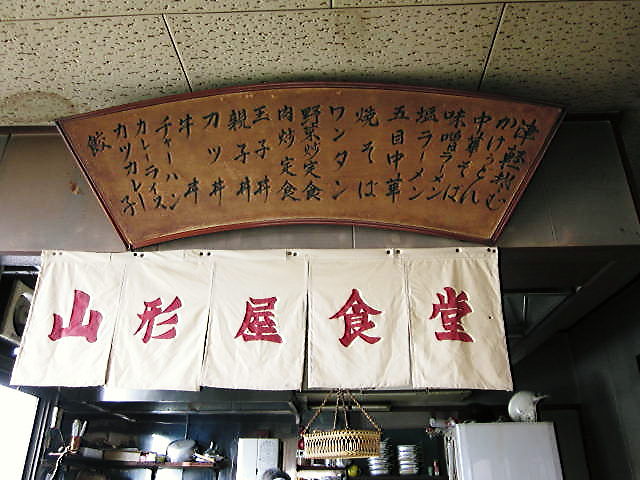 津軽そば
かけうどん
中華そば
味噌ラーメン
塩ラーメン
五目中華
焼そば
ワンタン
野菜炒定食
肉炒定食
玉子丼
親子丼
カツ丼
牛丼
チャーハン
カレーライス
カツカレー
餃子
山形屋食堂